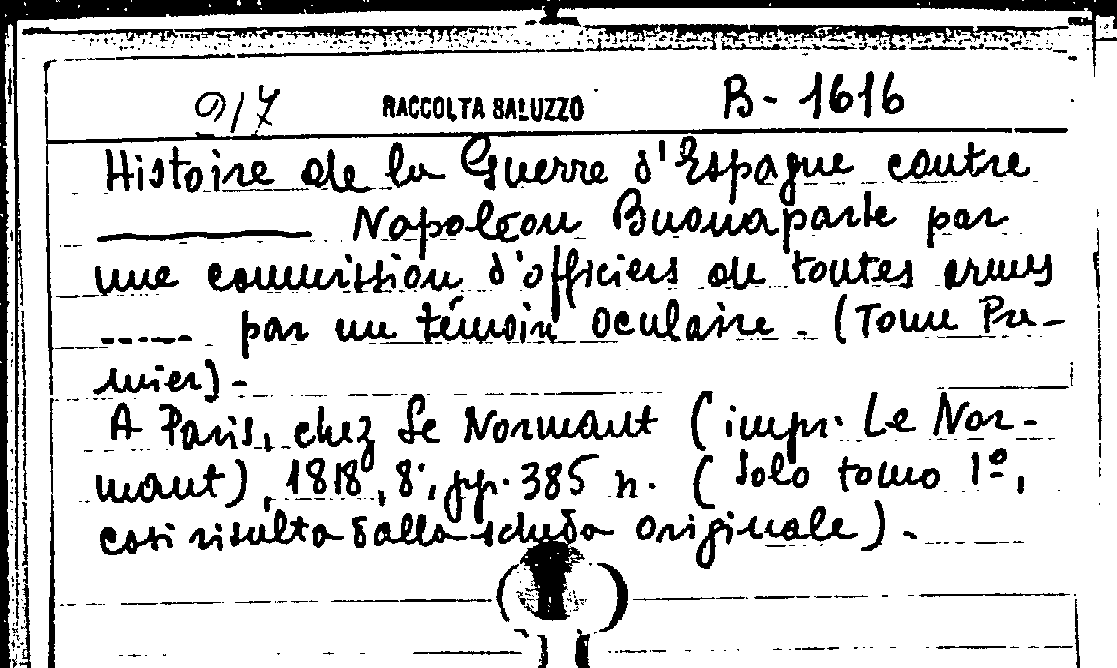 917 RACCOLTA SALUZZO B - 1616
Histoire de la Guerre d'Espagne contre
Napoléon Buonaparte par
une commission d'officiers de toutes armes
..... par un témoin oculaire. (Tome Pre-
mier) -
A Paris, chez Le Normant (impr. Le Nor-
mant), 1818, 8°, pp. 385 n. (Solo tomo 1º,
così risulta dalla scheda originale). -